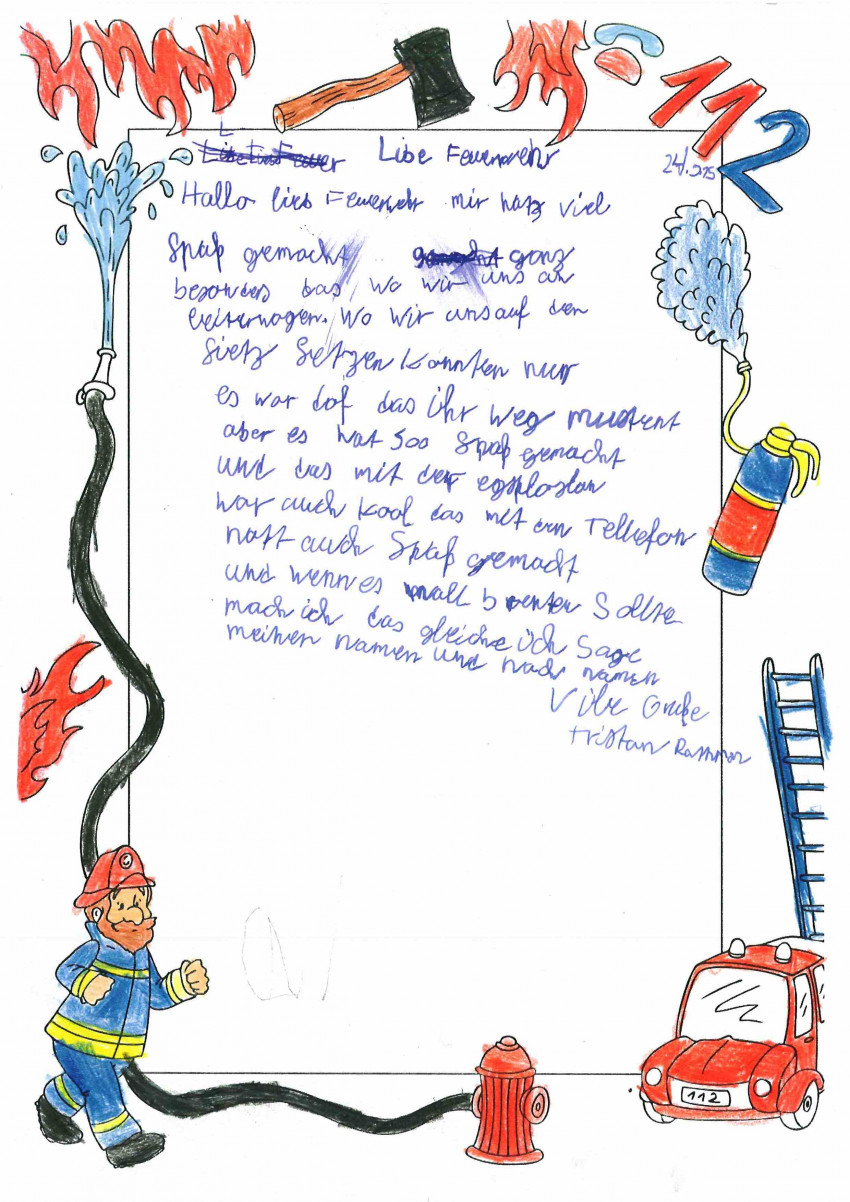 112
Libe Feuerwehr
Hallo lieb Feuerwehr mir hatz viel
Spaß gemacht ganz
besonders das, wo wir uns an
leiterwagen. Wo wir uns auf den
Sietz Setzen konnten nur
es war dof das ihr weg mustent
aber es hat soo Spaß gemacht
und das mit der egsploslon
war auch kool das mit den Tellefon
hatt auch Spaß gemacht
und wenn es mall brenten Sollte
mach ich das gleiche ich Sage
meinen namen und nach namen
Vile Gruße
Tristan
112